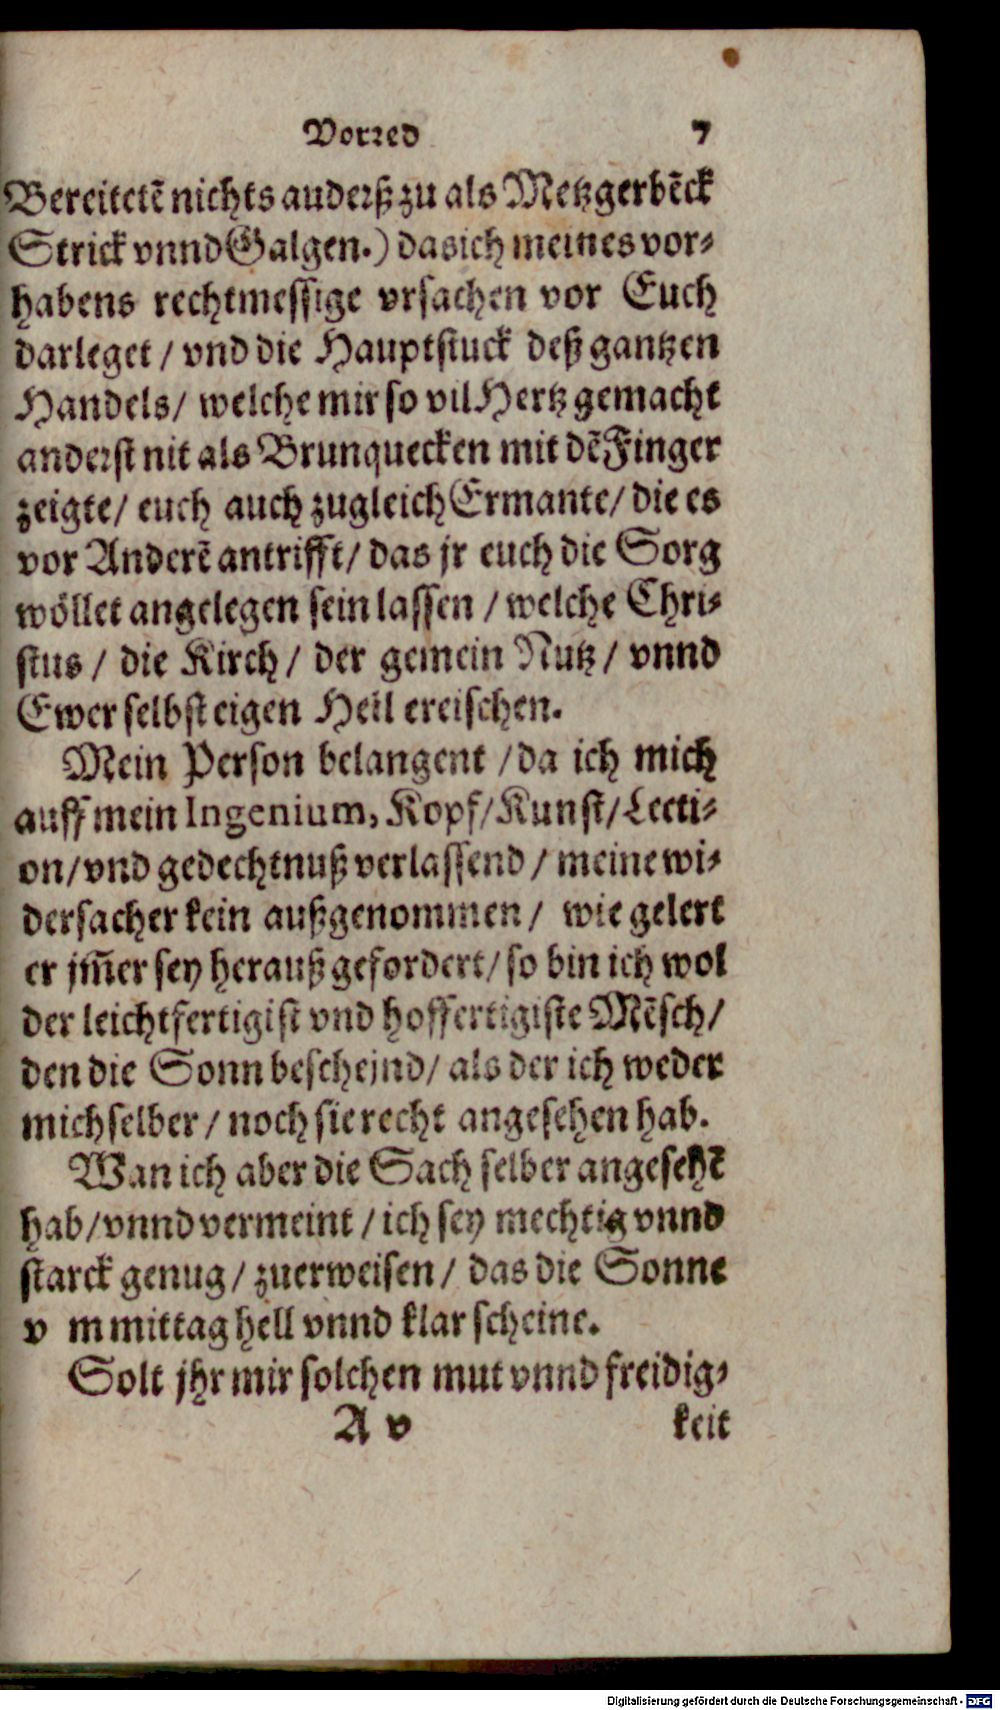 Vorred 7
Bereitetē nichts anderß zu als Metzgerbēck
Strick vnnd Galgen.) das ich meines vor-
habens rechtmessige vrsachen vor Euch
darleget / vnd die Hauptstuck deß gantzen
Handels / welche mir so vil Hertz gemacht
anderst nit als Brunquecken mit dē Finger
zeigte / euch auch zugleich Ermante / die es
vor Anderē antrifft / das jr euch die Sorg
wöllet angelegen sein lassen / welche Chri-
stus / die Kirch / der gemein Nutz / vnnd
Ewer selbst eigen Heil ereischen.
Mein Person belangent / da ich mich
auff mein Ingenium, Kopf / Kunst / Lecti-
on / vnd gedechtnuß verlassend / meine wi-
dersacher kein außgenommen / wie gelert
er jm̄er sey herauß gefordert / so bin ich wol
der leichtfertigist vnd hoffertigiste Mēsch /
den die Sonn beschejnd / als der ich weder
mich selber / noch sie recht angesehen hab.
Wan ich aber die Sach selber angesehē
hab / vnnd vermeint / ich sey mechtig vnnd
starck genug / zuerweisen / das die Sonne
v m mittag hell vnnd klar scheine.
Solt jhr mir solchen mut vnnd freidig-
A v keit
Digitalisierung gefördert durch die Deutsche Forschungsgemeinschaft - DFG